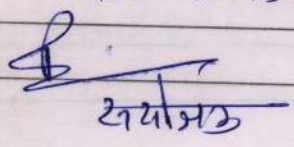 संयोजक